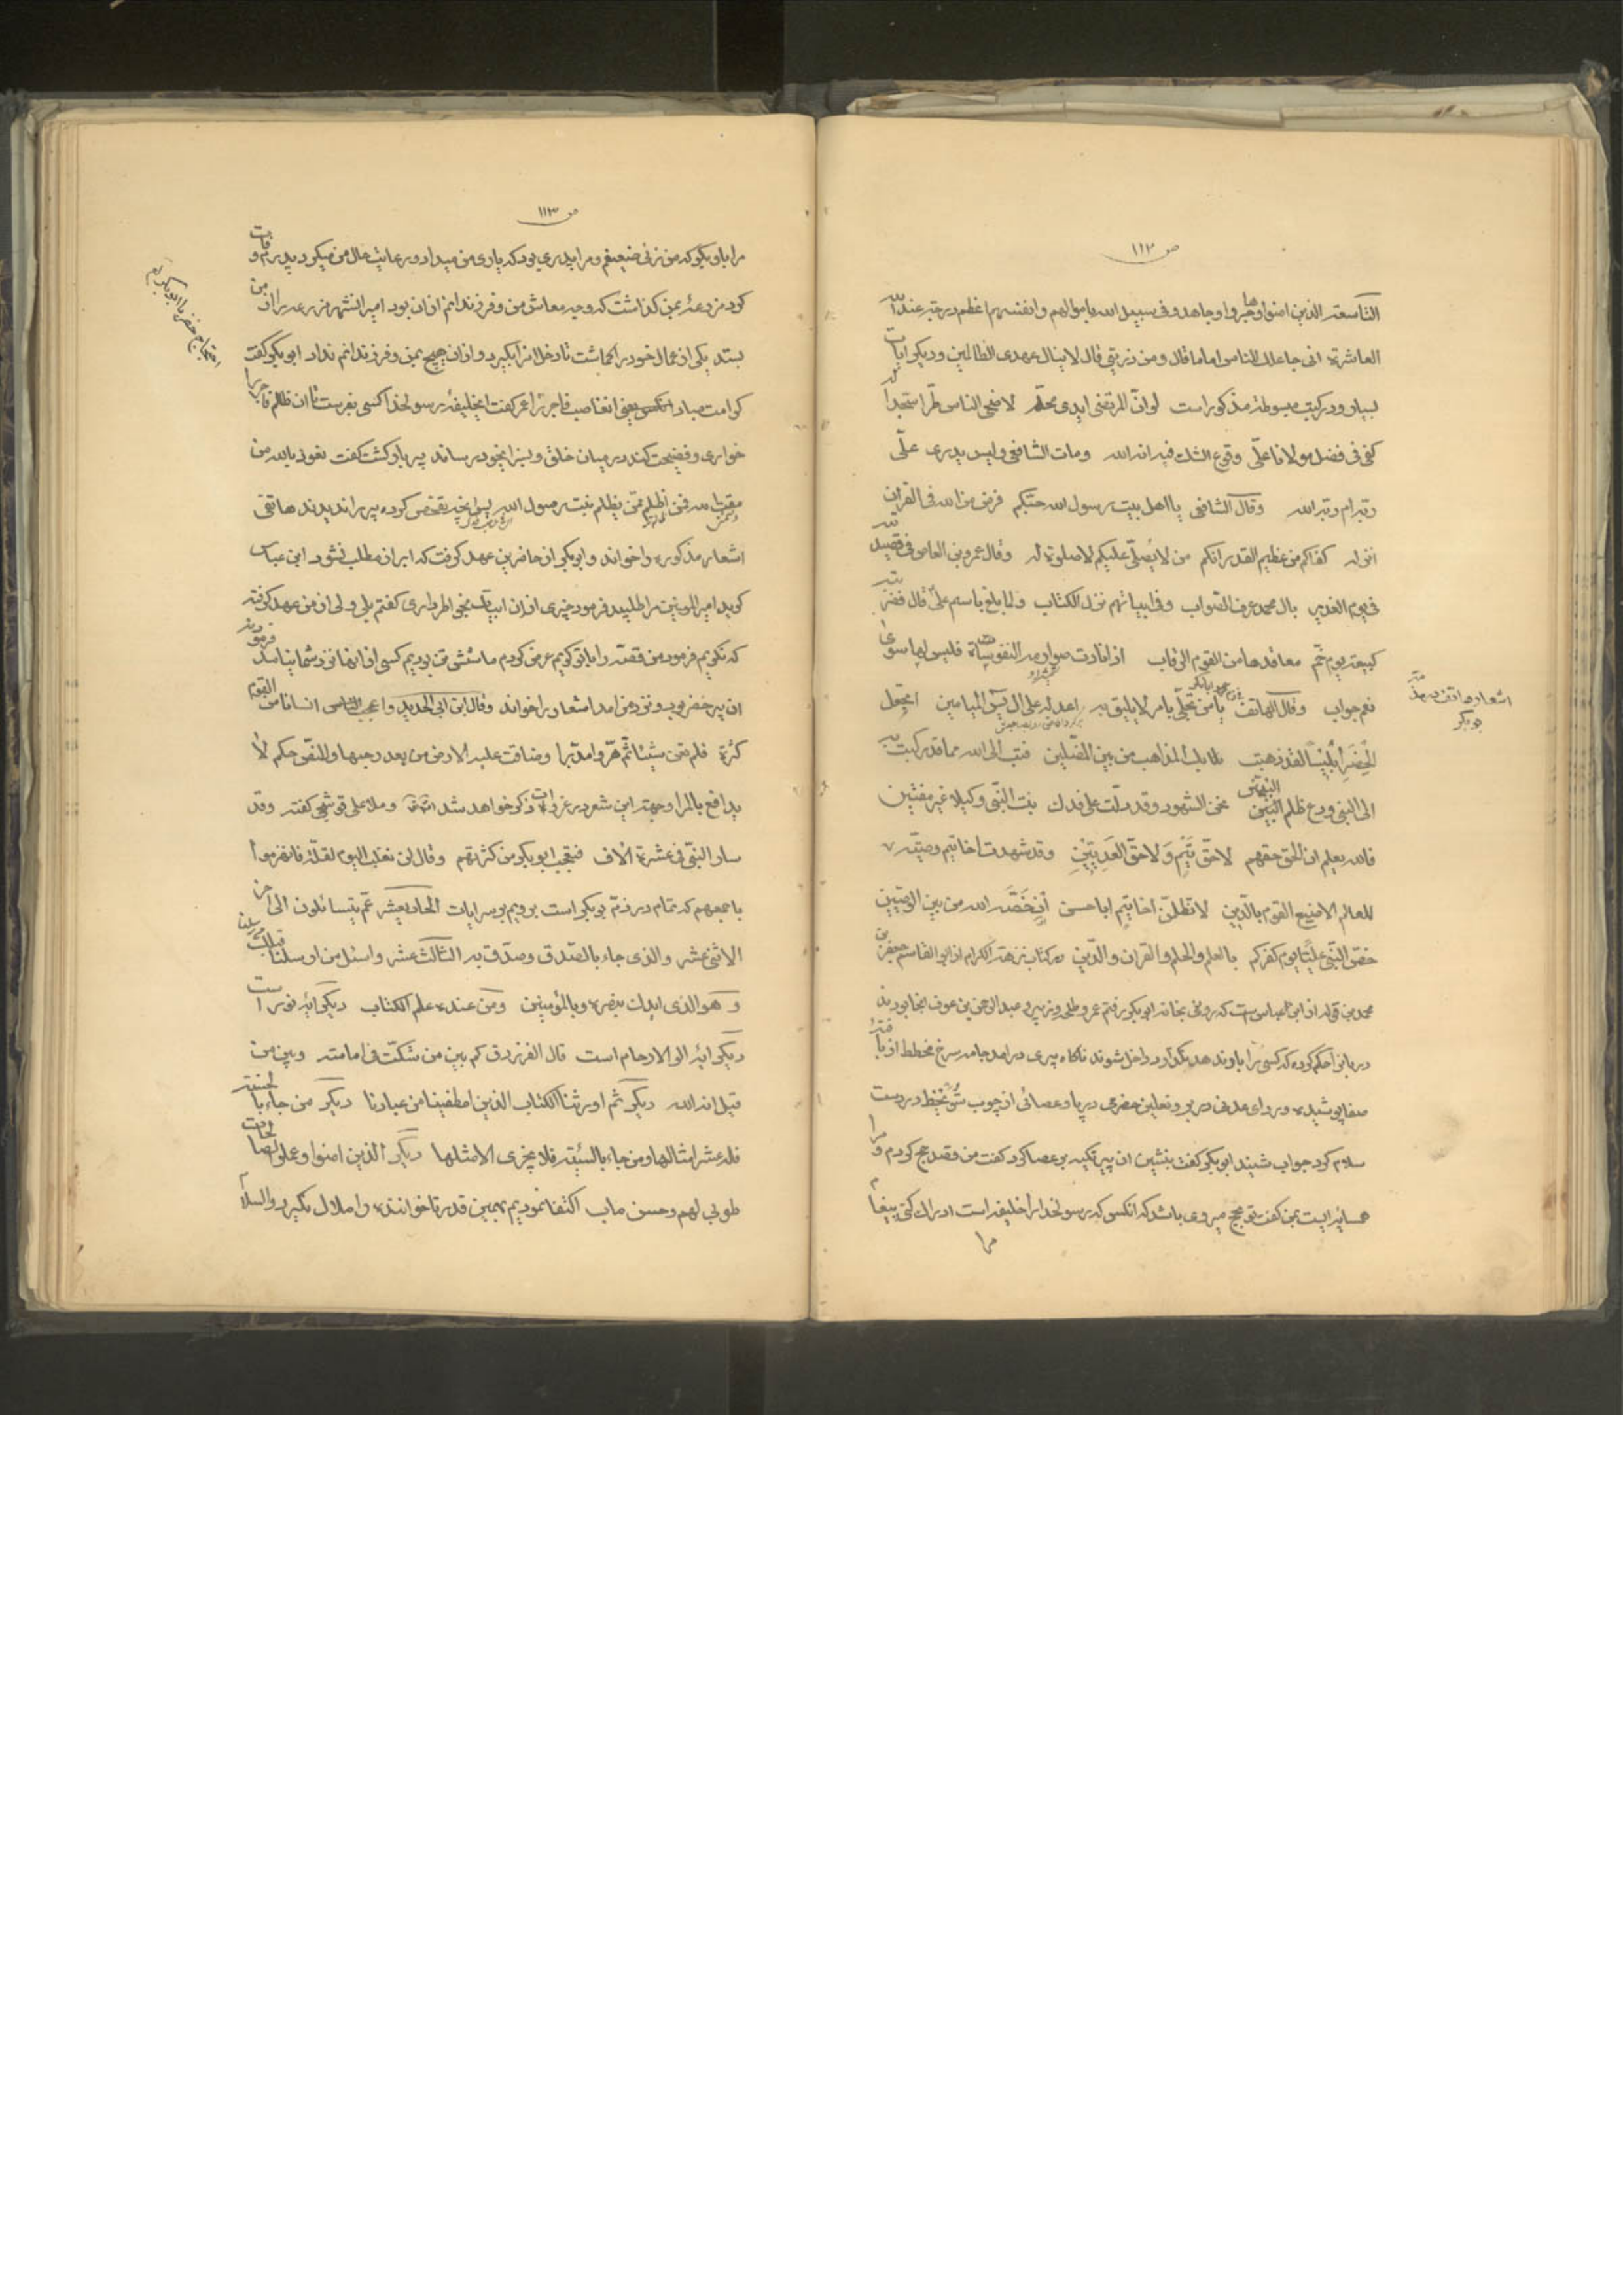 ص ۱۱۲
التاسعة الذین امنوا وهاجروا وجاهدوا فی سبیل الله باموالهم وانفسهم اعظم درجة عند الله
العاشرة انی جاعلک للناس اماما قال ومن ذریتی قال لا ینال عهدی الظالمین ودیگر ایات
بسیار ودر کتب مبسوطه مذکور است لو ان المرتضی ابدی محله لاضحی الناس طرا سجدا له
کفی فی فضل مولانا علی وقوع الشک فیه انه الله ومات الشافعی ولیس یدری علی
ربه ام ربه الله وقال الشافعی یا اهل بیت رسول الله حبکم فرض من الله فی القران
انزله کفاکم من عظیم القدر انکم من لا یصلی علیکم لا صلوة له وقال عمرو بن العاص فی قصیدته
فی یوم الغدیر بال محمد عرف الصواب وفی ابیاتهم نزل الکتاب ولما بلغ باسم علی قال فضربته
کبیعته یوم خم معاقدها من القوم الرقاب اذا نادت صوارمه النفوسا فلیس لها سوی
نعم جواب وقال الهاتف یا من تحلی بامر لا یلیق به اعدله علی ال یس المیامین اتجعل
اشعار هاتف در مذمت
بوبکر
الخضر ابلیسا لقد ذهبت بک المذاهب من بین المضلین فتب الی الله مما قد رکبت به
الی النبی ودع ظلم النبیین نحن الشهود وقد دلت علی فدک بنت النبی وکیلا غیر مفتین
فالله یعلم ان الحق حقهم لا حق تیم ولا حق العدیین وقد شهدت اخا تیم وصیته
للعالم الاضیع القوم بالدین لا تظلمن اخا تیم ابا حسن ان خصه الله من بین الوصیین
خص النبی علیا یوم کفرکم بالعلم والحلم والقران والدین در کتاب نزهة الکرام از ابو القاسم جعفر بن
محمد بن قوله از ابن عباس است که روزی بخانه ابوبکر رفتم عمر وطلحه وزبیر وعبد الرحمن بن عوف انجا بودند
دربانرا حکم کرده که کسی را باو ندهد نگذارد داخل شوند ناگاه پیری درامد جامه سرخ مخطط از بافته
صفا پوشیده وردای عدنی در بر ونعلین حضرمی در پا وعصائی از چوب شوخط در دست
سلام کرد جواب شنید ابوبکر گفت بنشین ان پیر تکیه بر عصا کرد گفت من قصد حج کردم ومرا
همسایه ایست بمن گفت تو بحج میروی باشد که انکس که رسولخدا را خلیفه است ادراک کنی پیغام
مرا
ص ۱۱۳
مرا باو بگو که من زنی ضعیفم ومرا پدری بود که یاری من میداد ورعایت حال من میکرد پدرم وفات
کرد مزرعه بمن گذاشت که وجه معاش من وفرزندانم ازان بود امیر انشهر مزرعه را از من
بستد یکی از عمال خود بر گماشت تا دخل انرا بگیرد وازان هیچ بمن وفرزندانم نداد ابوبکر گفت
کرامت مباد انکس یعنی ان غاصب فاجر را عمر گفت ایخلیفه رسولخدا کسی بفرست تا ان ظالم فاجر را
خواری وفضیحت کند در میان خلق وبسزا بخود رساند پیر باز گشت گفت نعوذ بالله من
مقت الله فمن اظلم ممن یظلم بنت رسول الله پس انچه تفحص کرده پیر را ندیدند هاتفی
اشعار مذکوره را خواند وابوبکر از حاضرین عهد گرفت که ابراز مطلب نشود ابن عباس
گوید امیر المومنین مرا طلبید فرمود چیزی ازان ابیات بخاطر داری گفتم بلی ولی از من عهد گرفته
که نگویم فرمود من قصه را با تو گویم عرض کردم ما شش تن بودیم کسی از انها نزد شما نیامد فرمود
ان پیر خضر بود ونزد من امد اشعار را خواند وقال ابن ابی الحدید واعجب انسانا من القوم
کثرة فلم تغن شیئا ثم هر وامدبرا وضاقت علیه الارض من بعد رحبها وللنص حکم لا
یدافع بالمرا وجهة این شعر در غزوات ذکر خواهد شد وملا علی قوشجی گفته وقد
سار النبی فی عشرة الاف فتعجب ابوبکر من کثرتهم وقال لن نغلب الیوم لقلة فانهزموا
باجمعهم که تمام در ذم بوبکر است برویم بر سر ایات الحادیعشر عم یتسائلون الی اخر
الاثنی عشر والذی جاء بالصدق وصدق به الثالث عشر واسئل من ارسلنا قبلک
وهو الذی ایدک بنصره وبالمؤمنین ومن عنده علم الکتاب دیگر ایه نور است
دیگر ایه الو الارحام است قال الفرزدق کم بین من شکت فی امامته وبین من
قیل انه الله دیگر ثم اورثنا الکتاب الذین اصطفینا من عبادنا دیگر من جاء بالحسنة
فله عشر امثالها ومن جاء بالسیئة فلا یجزی الا مثلها دیگر الذین امنوا وعملوا الصالحات
طوبی لهم وحسن ماب اکتفا نمودیم بهمین قدر تا خواننده را ملال نگیرد والسلام